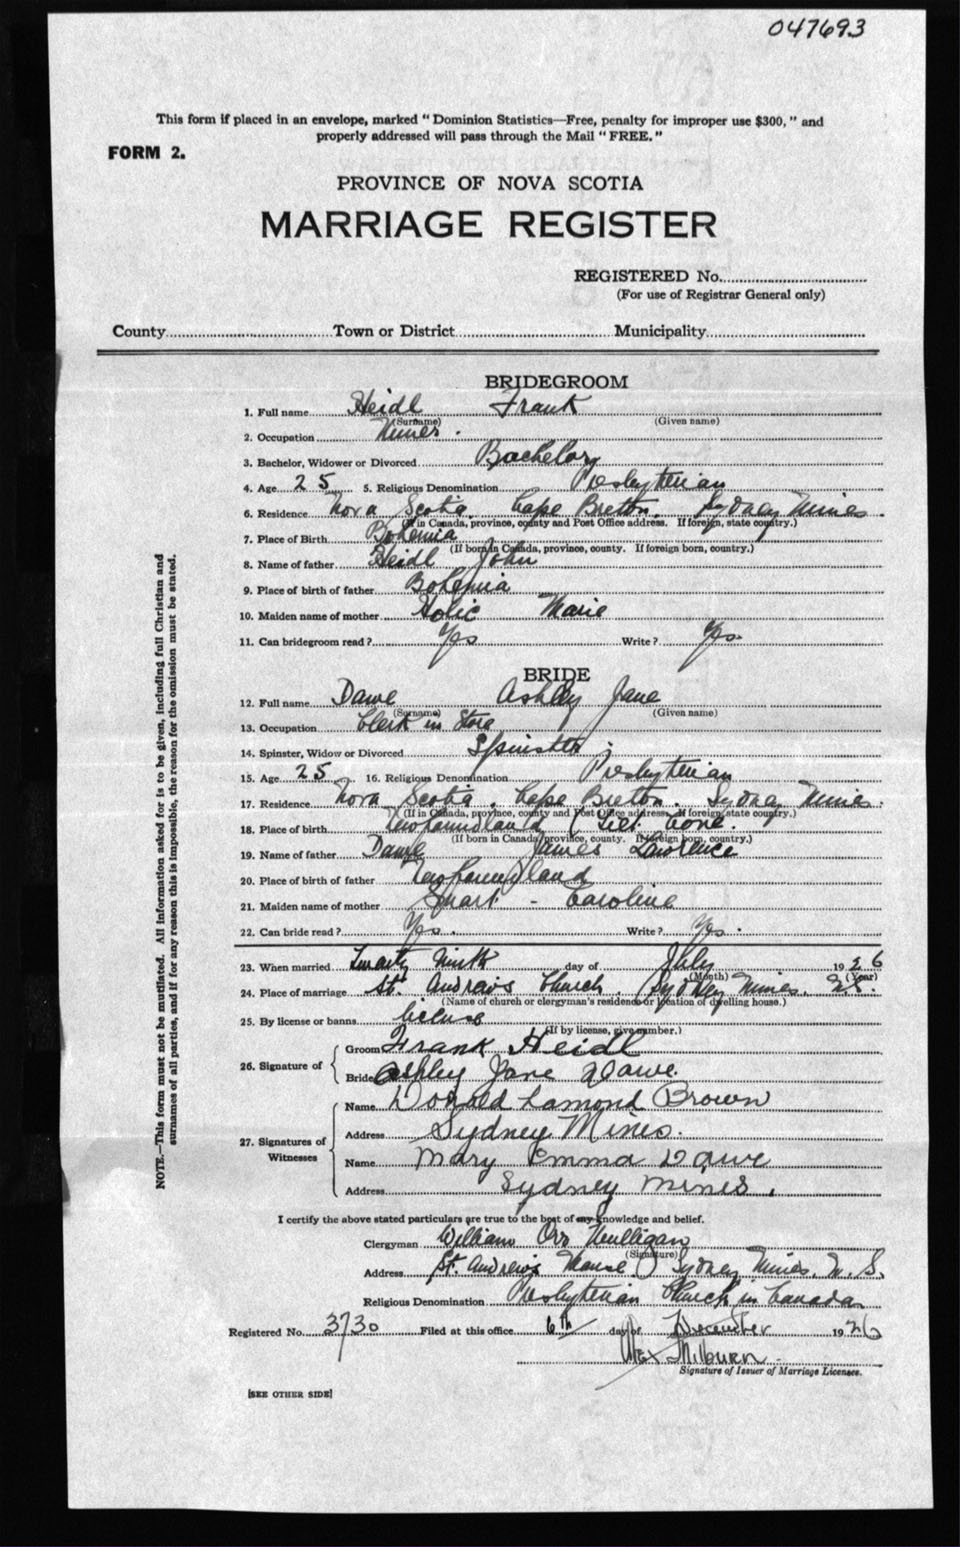 047693
This form if placed in an envelope, marked "Dominion Statistics—Free, penalty for improper use $300," and
properly addressed will pass through the Mail "FREE."
FORM 2.
PROVINCE OF NOVA SCOTIA
MARRIAGE REGISTER
REGISTERED No.
(For use of Registrar General only)
County Town or District Municipality
BRIDEGROOM
1. Full name Heidl Frank
(Surname) (Given name)
2. Occupation Miner.
3. Bachelor, Widower or Divorced Bachelor
4. Age 25 5. Religious Denomination Presbyterian
6. Residence Nova Scotia. Cape Breton. Sydney Mines.
(If in Canada, province, county and Post Office address. If foreign, state country.)
7. Place of Birth Bohemia
(If born in Canada, province, county. If foreign born, country.)
8. Name of father Heidl John
9. Place of birth of father Bohemia
10. Maiden name of mother Holic Marie
11. Can bridegroom read? Yes Write? Yes.
BRIDE
12. Full name Dawe Ashley Jane
(Surname) (Given name)
13. Occupation Clerk in Store
14. Spinster, Widow or Divorced Spinster.
15. Age 25 16. Religious Denomination Presbyterian
17. Residence Nova Scotia. Cape Breton. Sydney Mines.
(If in Canada, province, county and Post Office address. If foreign, state country.)
18. Place of birth Newfoundland
(If born in Canada, province, county. If foreign born, country.)
19. Name of father Dawe James Lawrence
20. Place of birth of father Newfoundland
21. Maiden name of mother Smart - Caroline
22. Can bride read? Yes. Write? Yes.
23. When married Twenty Ninth day of July 1926
(Month) (Year)
24. Place of marriage St. Andrew's Church. (Sydney Mines. N.S.
(Name of church or clergyman's residence or location of dwelling house.)
25. By license or banns license
(If by license, give number.)
26. Signature of { Groom Frank Heidl
Bride Ashley Jane Dawe.
27. Signatures of Witnesses { Name Donald Lamond Brown
Address Sydney Mines.
Name Mary Emma Dawe
Address Sydney Mines.
I certify the above stated particulars are true to the best of my knowledge and belief.
Clergyman William Orr Mulligan
(Signature)
Address St. Andrew's Manse Sydney Mines. N.S.
Religious Denomination Presbyterian Church in Canada
Registered No. 3730 Filed at this office 6th day of December 1926
Alex Milburn.
Signature of Issuer of Marriage Licenses.
[SEE OTHER SIDE]
NOTE.—This form must not be mutilated. All information asked for is to be given, including full Christian and
surnames of all parties, and if for any reason this is impossible, the reason for the omission must be stated.